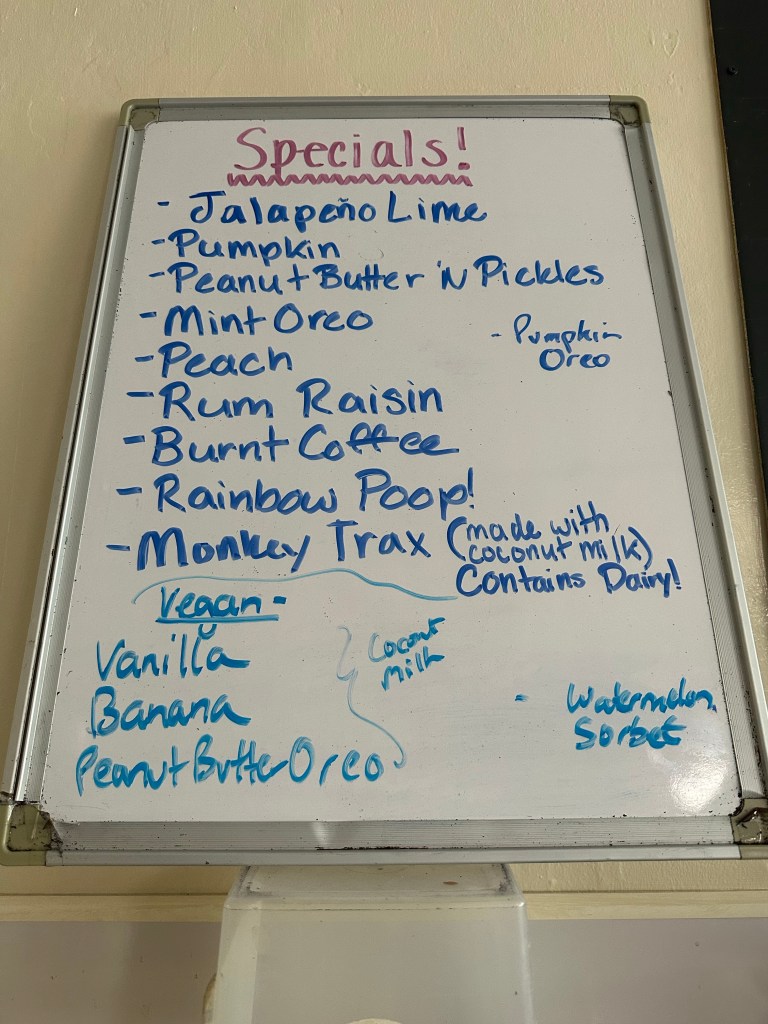 Specials!
- Jalapeño Lime
- Pumpkin
- Peanut Butter 'N Pickles
- Mint Oreo
- Pumpkin
Oreo
- Peach
- Rum Raisin
- Burnt Coffee
- Rainbow Poop!
- Monkey Trax (made with
coconut milk)
Contains Dairy!
Vegan -
Vanilla
Banana
Peanut Butter Oreo
Coconut
Milk
- Watermelon
Sorbet